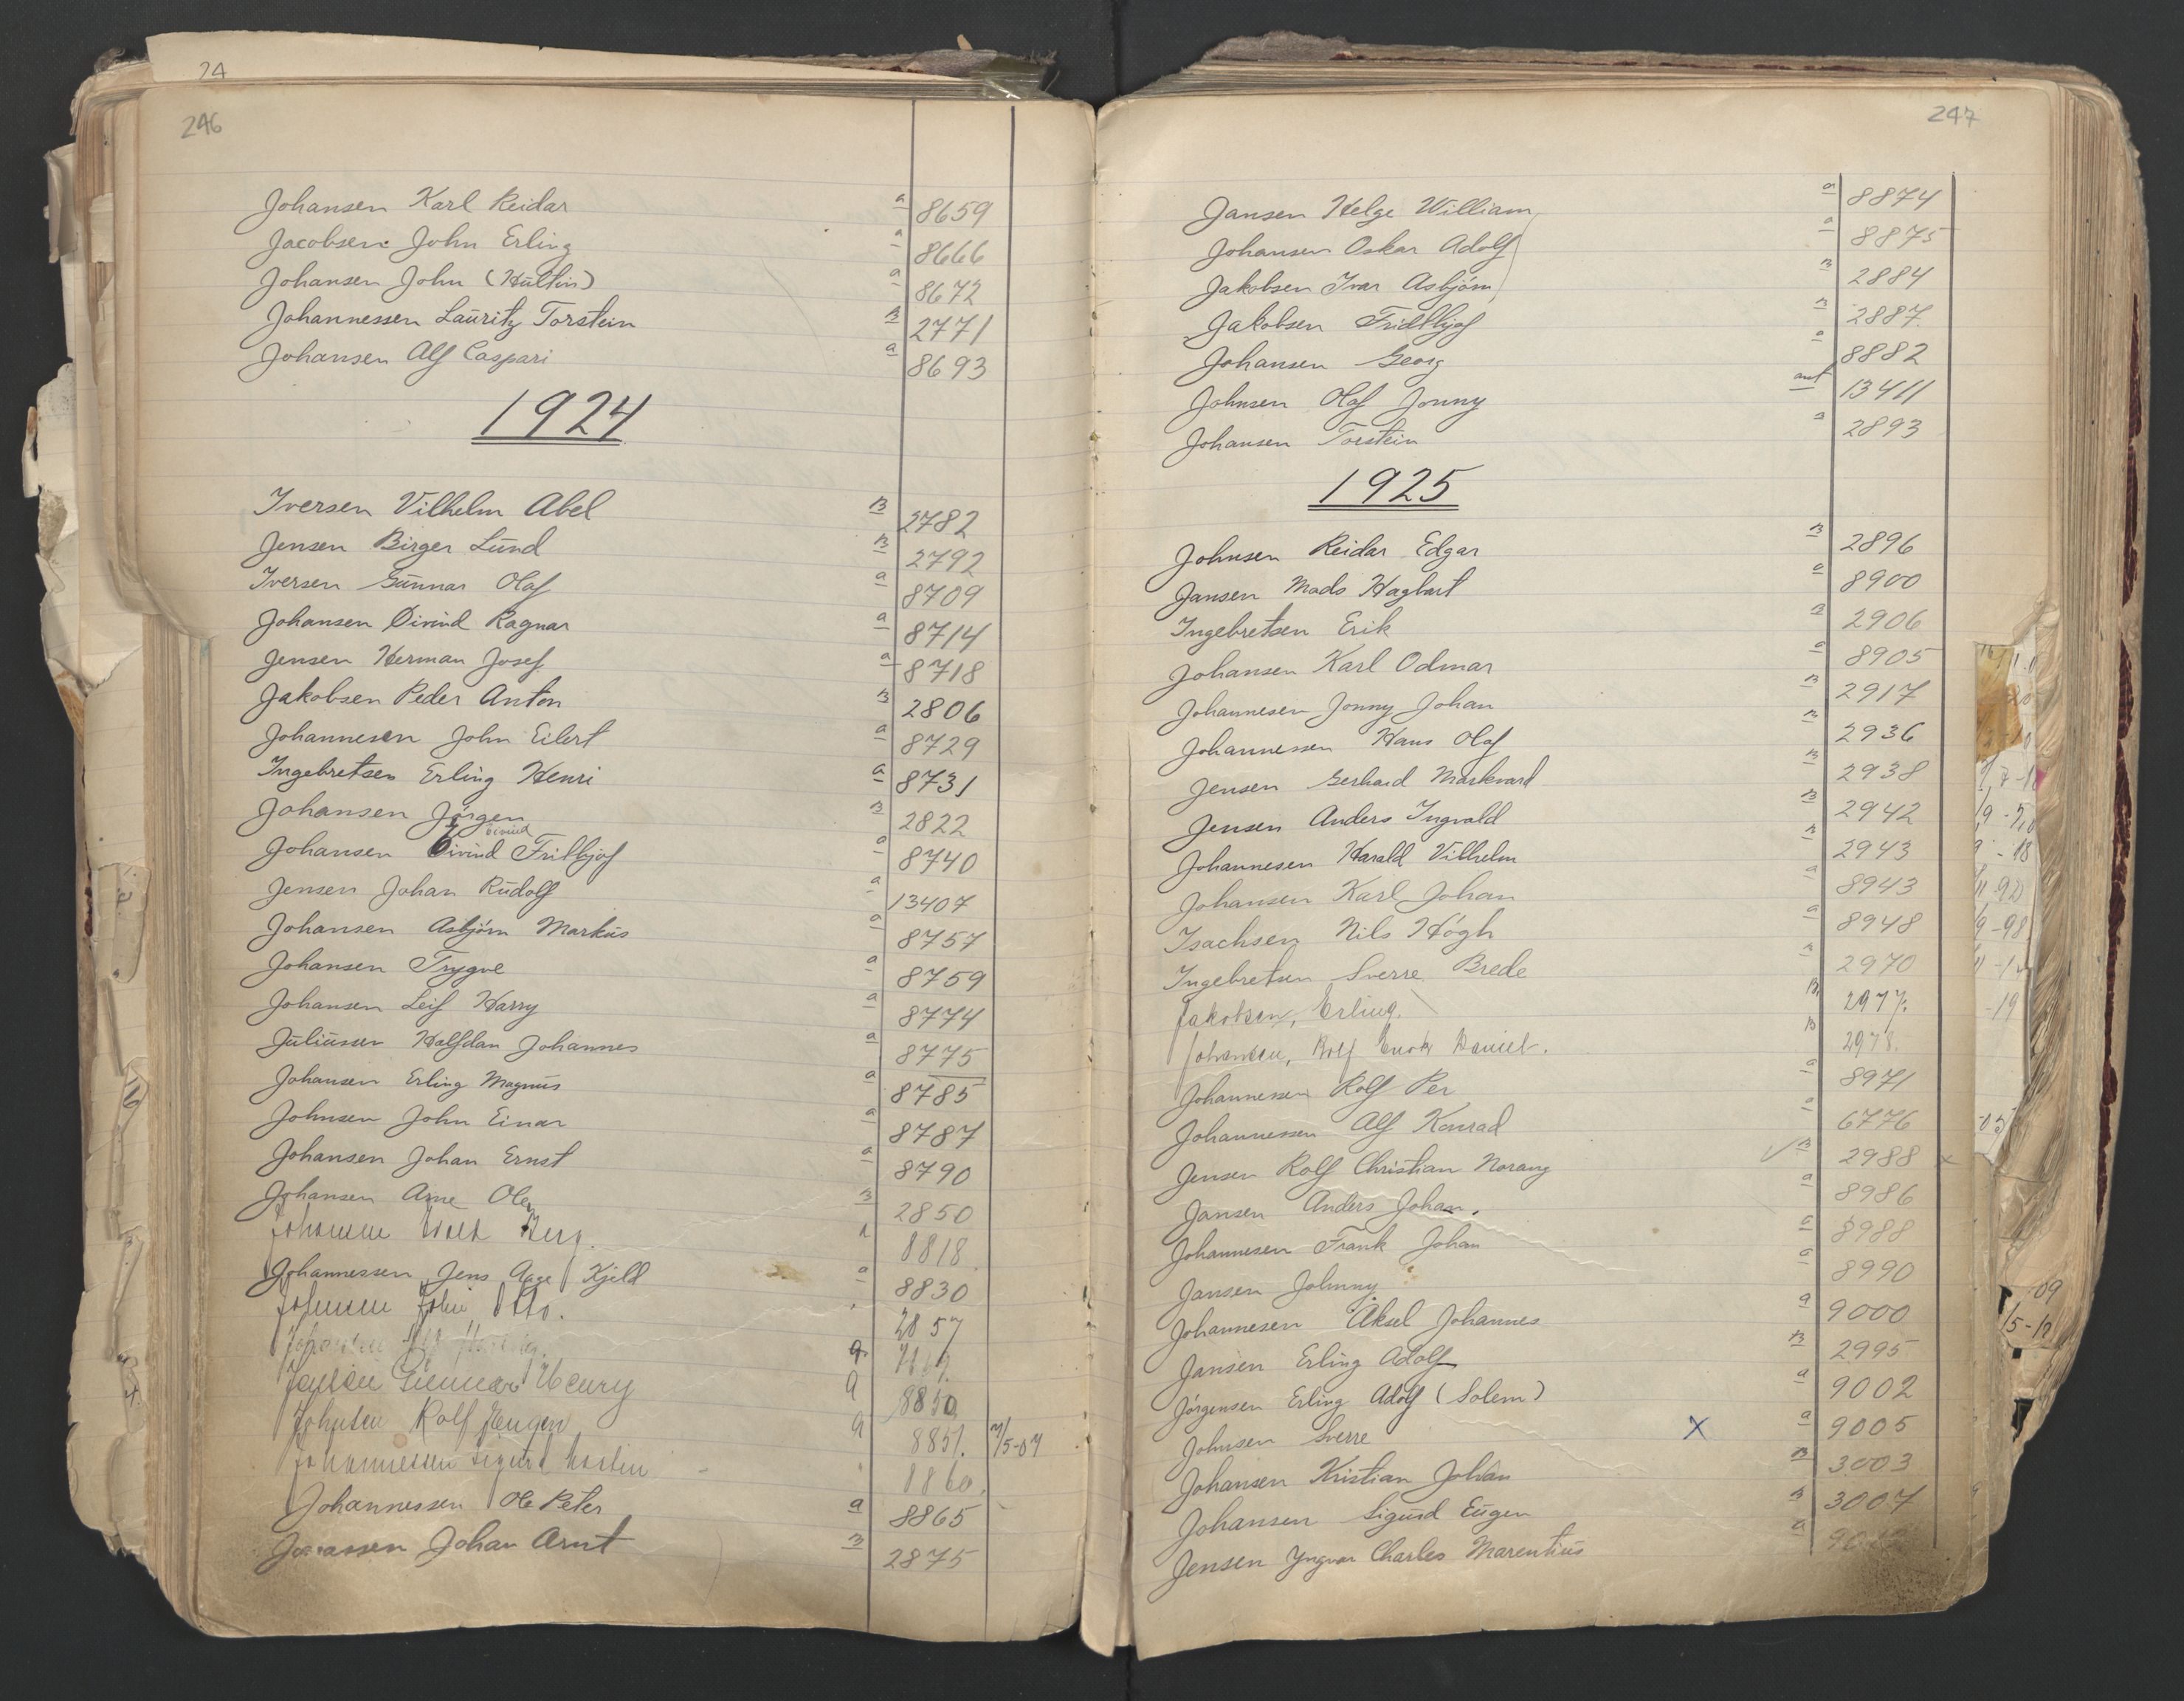 24
246
Johansen Karl Reidar a 8659
Jacobsen John Erling a 8666
Johansen John (Hultin) a 8672
Johannessen Lauritz Torstein B 2771
Johansen Alf Caspari a 8693
1924
Iversen Vilhelm Abel B 2782
Jensen Birger Lund B 2792
Iversen Gunnar Olaf a 8709
Johansen Øivind Ragnar a 8714
Jensen Herman Josef a 8718
Jakobsen Peder Anton B 2806
Johannesen John Eilert a 8729
Ingebretsen Erling Henri a 8731
Johansen Jørgen B 2822
Øivind
Johansen Øivind Fritbjof a 8740
Jensen Johan Rudolf a 13407
Johansen Asbjørn Markus a 8757
Johansen Trygve a 8759
Johansen Leif Harry a 8774
Juliussen Halfdan Johannes a 8775
Johansen Erling Magnus a 8785
Johnsen John Einar a 8787
Johansen Johan Ernst a 8790
Johansen Arne Olav B 2850
Berg. 8818
Johannessen Jens Aage Kjeld a 8830
John Otto. 2857
a
Gunnar Henry a 8850
Johnsen Rolf Jørgen a 8851. 5-07
Johannessen Sigurd Martin 8860.
Johannessen Ole Peter a 8865
Johan Arnt B 2875
247
Jansen Helge William a 8874
Johansen Oskar Adolf a 8875
Jakobsen Ivar Asbjørn B 2884
Jakobsen Fridtbjof B 2887
Johansen Georg a 8882
Johnsen Olaf Jonny amt 13411
Johansen Torstein B 2893
1925
Johnsen Reidar Edgar B 2896
Jansen Mads Hagbart a 8900
Ingebretsen Erik B 2906
Johansen Karl Odmar a 8905
Johannesen Jonny Johan B 2917
Johannessen Hans Olaf B 2936
Jensen Gerhard Markvard B 2938
Jensen Anders Ingvald B 2942
Johannesen Harald Vilhelm B 2943
Johansen Karl Johan a 8943
Isachsen Nils Høgh a 8948
Ingebretsen Sverre Brede B 2970
Jakobsen, Erling. B 2977.
Johansen, Rolf Enok Daniel. B 2978.
Johannessen Rolf Per a 8971
Johannessen Alf Konrad a 6776
Jensen Rolf Christian Norang ✓ B 2988 x
Jansen Anders Johan. a 8986
Johannesen Frank Johan a 8988
Jansen Johnny a 8990
Johannesen Aksel Johannes a 9000
Jansen Erling Adolf B 2995
Jørgensen Erling Adolf (Solem) a 9002
Johnsen Sverre X a 9005
Johansen Kristian Johan B 3003
Johansen Sigurd Eugen B 3007
Jensen Yngvar Charles Marentius a